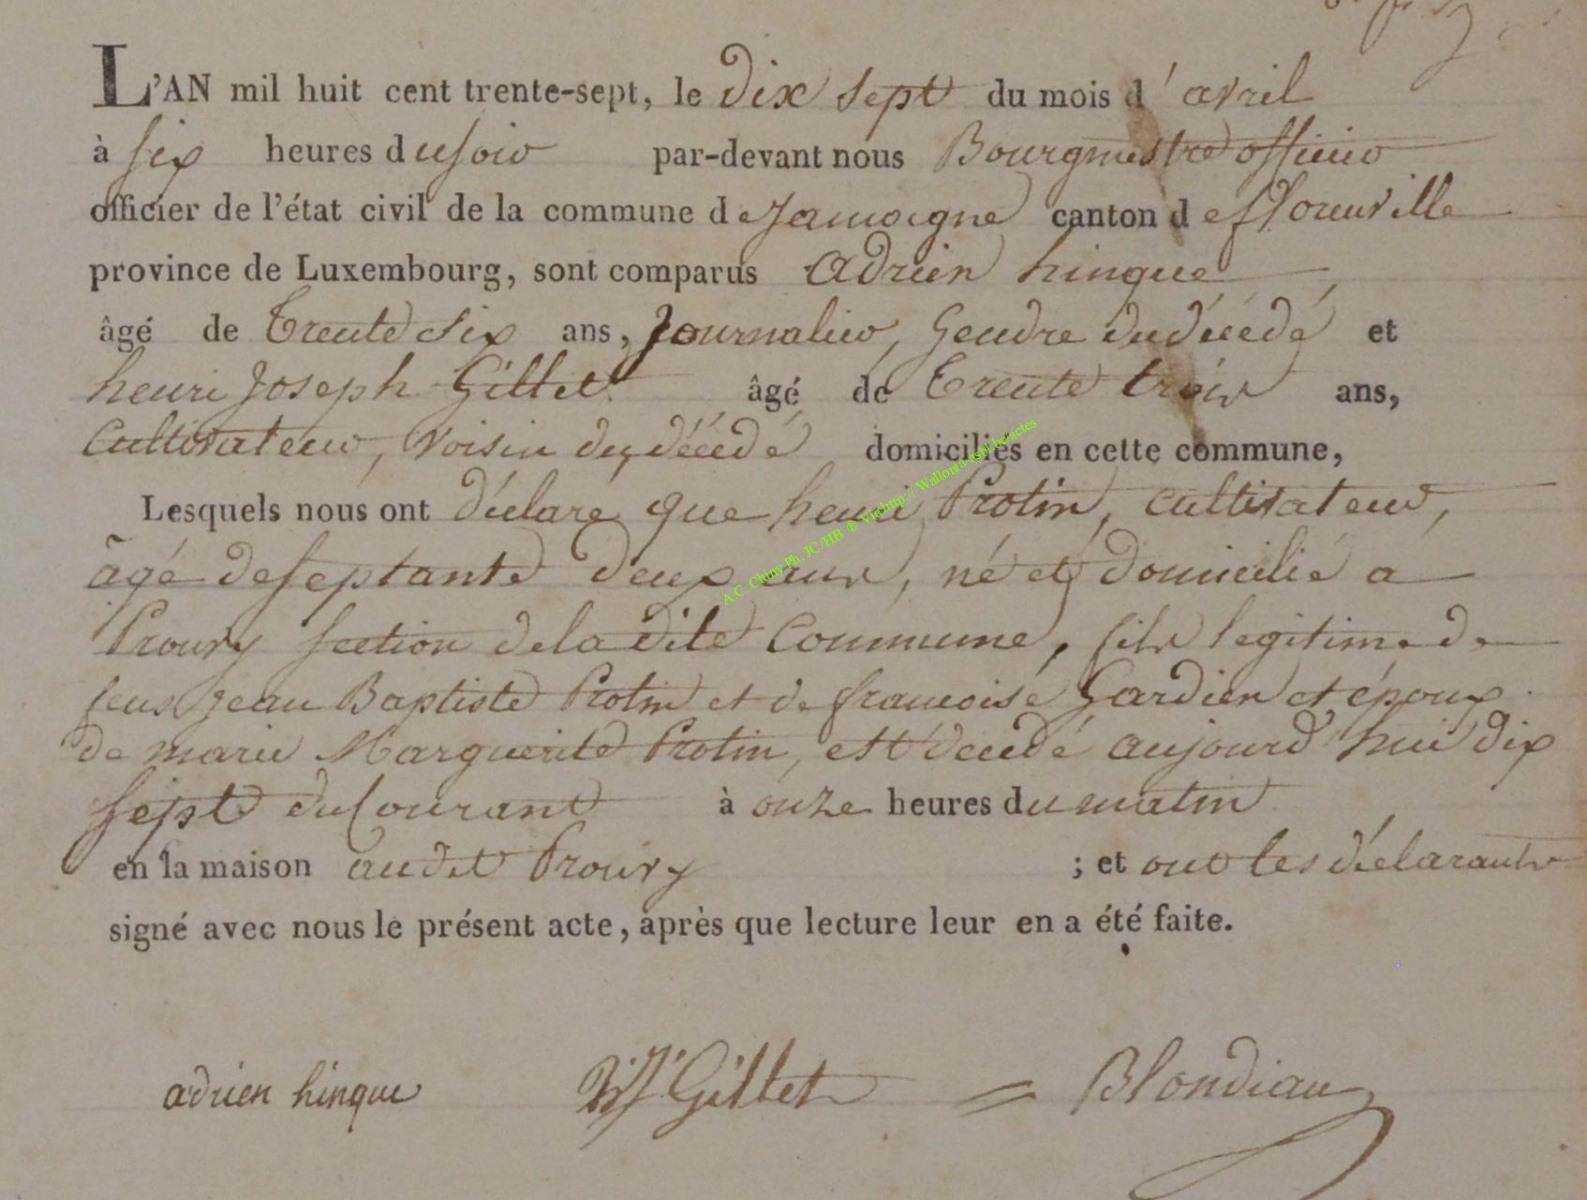 L'AN mil huit cent trente-sept, le dix sept du mois d'avril
à six heures du soir par-devant nous Bourgmestre officier
officier de l'état civil de la commune de Jamoigne canton de florenville
province de Luxembourg, sont comparus adrien hinque,
âgé de Trente six ans, Journalier, Gendre du décédé et
henri Joseph Gillet âgé de Trente trois ans,
Cultivateur, voisin du décédé domiciliés en cette commune,
Lesquels nous ont déclaré que henri Protin, cultivateur,
âgé de septante deux ans, né et domicilié a
Prouvy section de la dite Commune, fils legitime de
feus Jean Baptiste Protin et de francoise Gardien et époux
de marie Marguerite Protin, est décédé aujourd'hui dix
sept du Courant à onze heures du matin
en la maison audit Prouvy ; et ont les déclarants
signé avec nous le présent acte, après que lecture leur en a été faite.
adrien hinque Gillet Blondiau